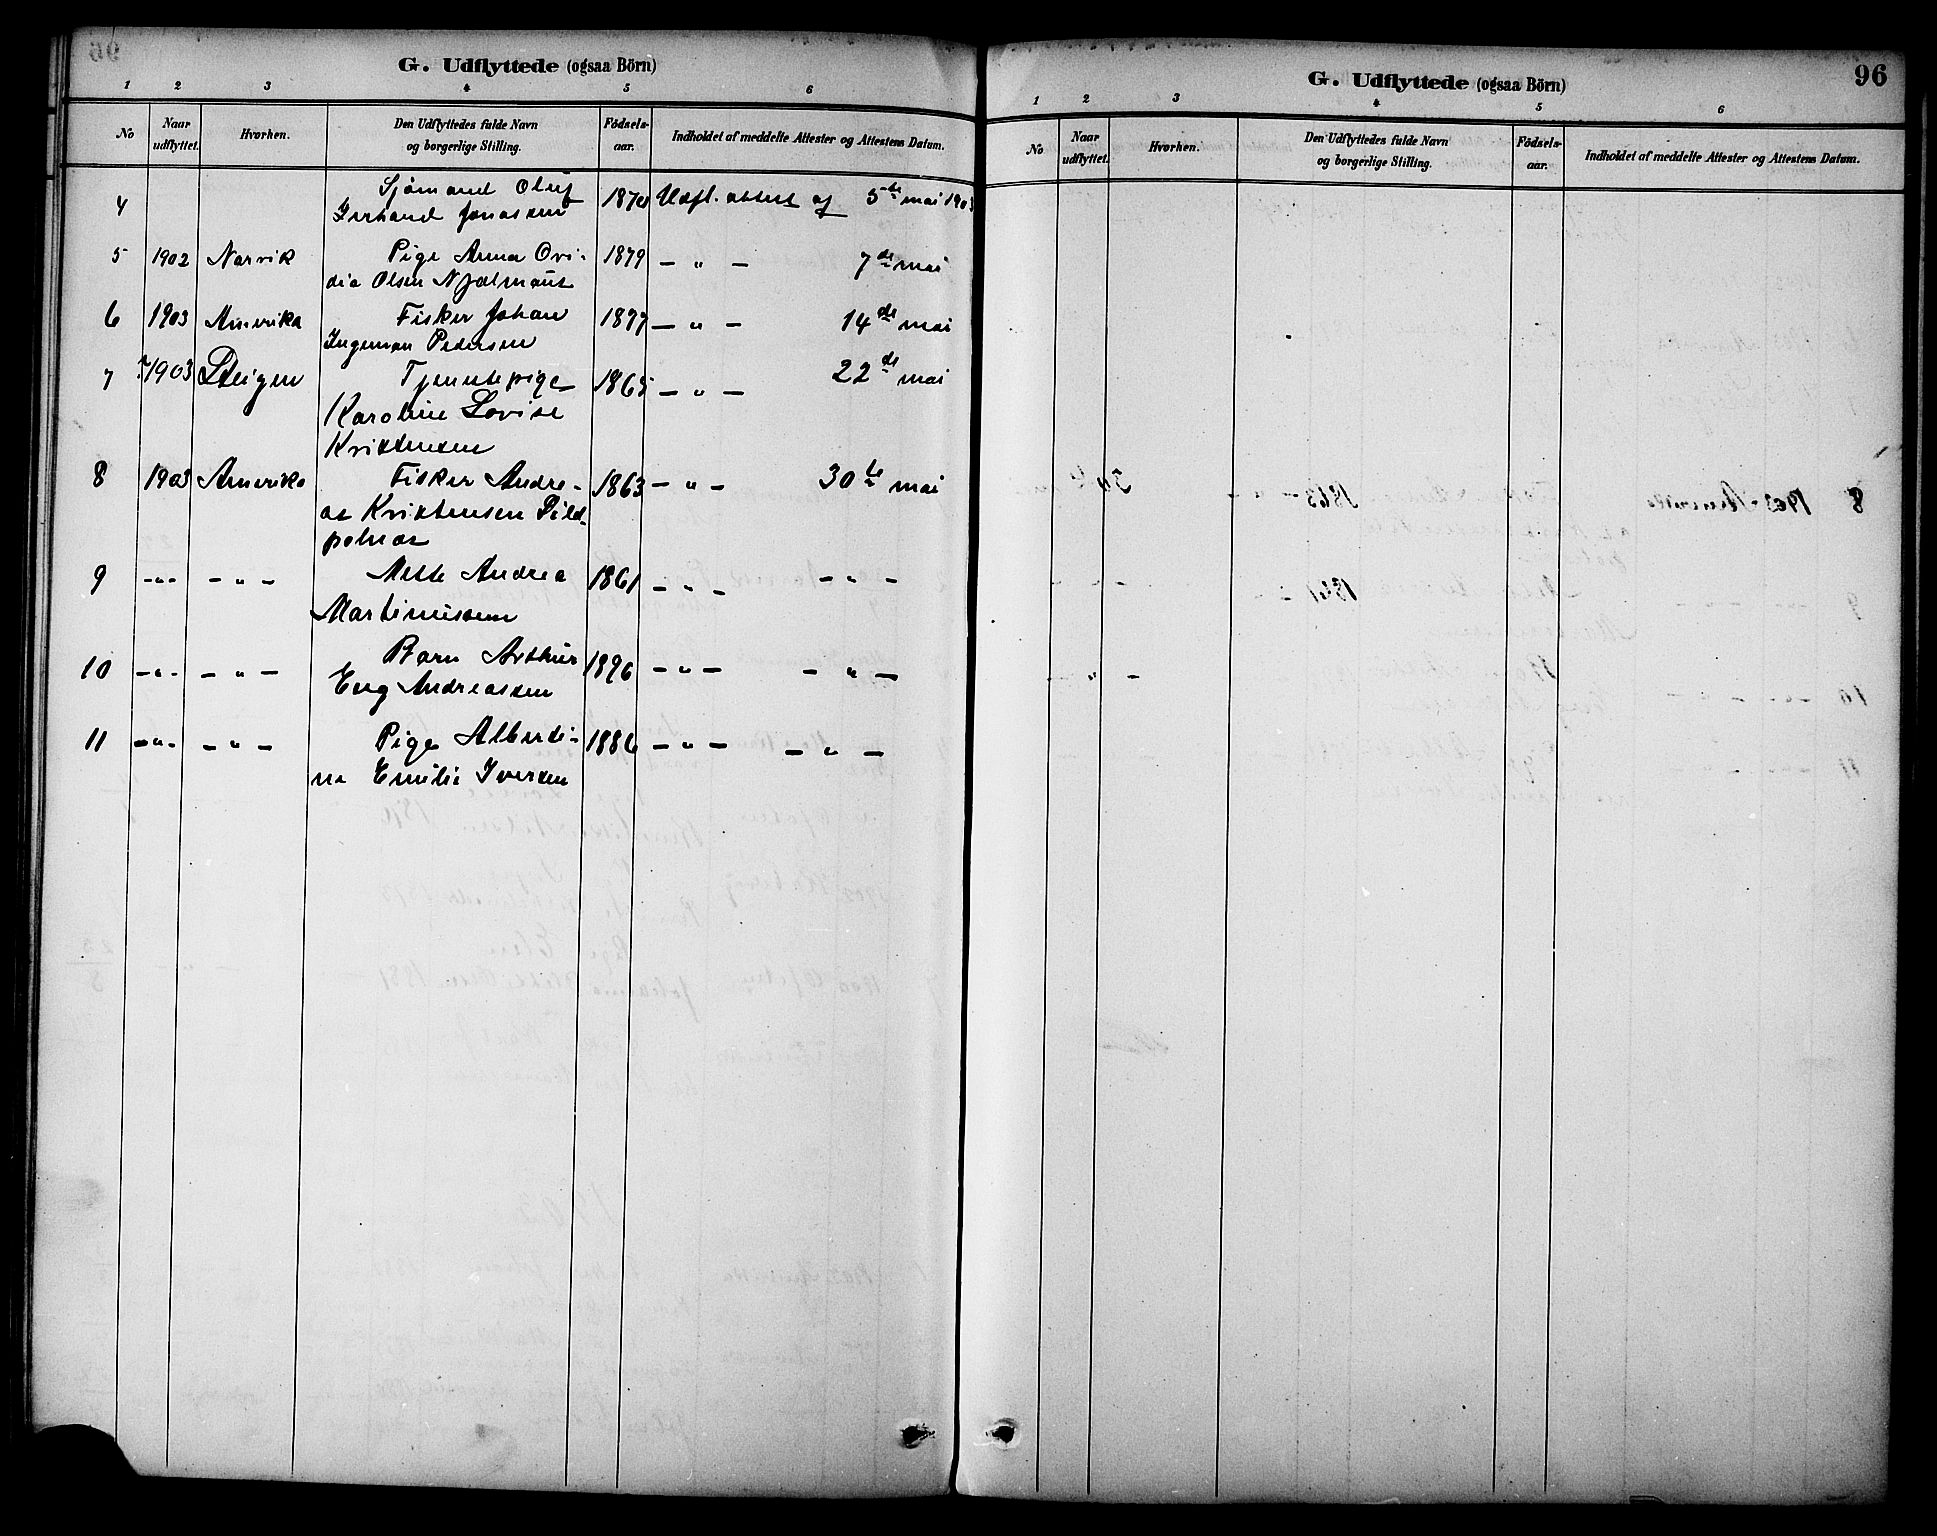 G. Udflyttede (ogsaa Börn)
1 2 3 4 5 6
No Naar udflyttet. Hvorhen. Den Udflyttedes fulde Navn og borgerlige Stilling. Fødsels-aar. Indholdet af meddelte Attester og Attestens Datum.
4 Sjømand Oluf 1870 Udfl. attest af 5te mai 1903
Jonassen
5 1902 Narvik Pige Anna Ovi- 1879 - " - 7de mai
dia Olsen
6 1903 Amerika Fisker Johan 1877 - " - 14de mai
Ingeman Pedersen
7 1903 Steigen Tjenestepige 1865 - " - 22de mai
Karoline Lovise
Kristensen
8 1903 Amerika Fisker Andre- 1863 - " - 30te mai
as Kristensen
9 - " - - " - Mette Andrea 1861 - " - - " -
Martinussen
10 - " - - " - Barn Arthur 1896 - " - - " -
Andreassen
11 - " - - " - Pige Alberti- 1886 - " - - " -
na Emilie Iversen
G. Udflyttede (ogsaa Börn) 96
1 2 3 4 5 6
No Naar udflyttet. Hvorhen. Den Udflyttedes fulde Navn og borgerlige Stilling. Fødsels-aar. Indholdet af meddelte Attester og Attestens Datum.